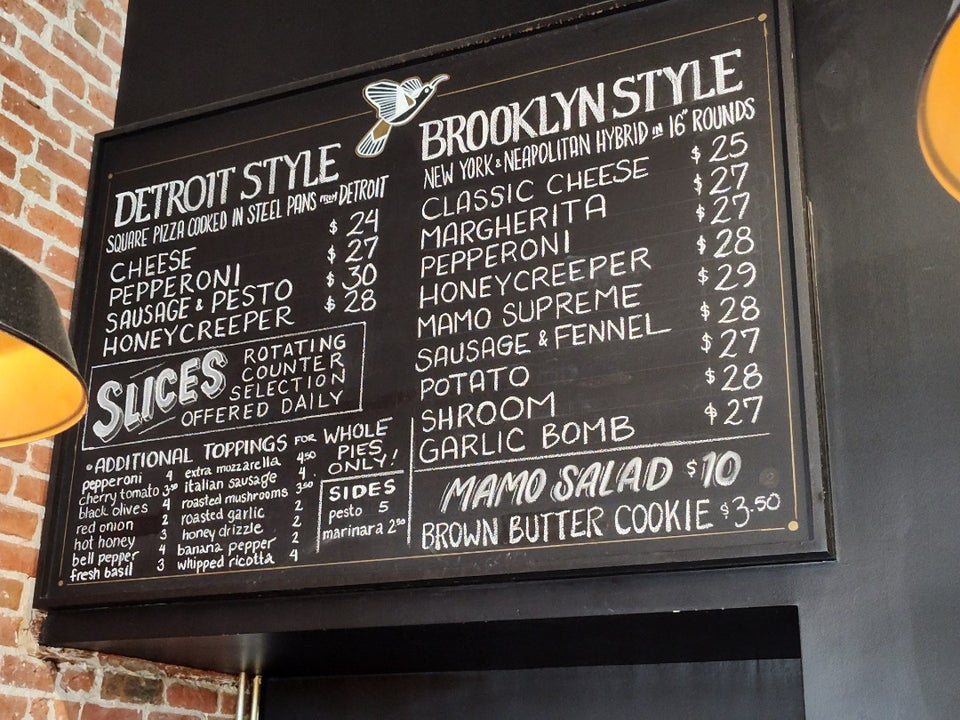 DETROIT STYLE
SQUARE PIZZA COOKED IN STEEL PANS FROM DETROIT
CHEESE $24
PEPPERONI $27
SAUSAGE & PESTO $30
HONEYCREEPER $28
SLICES
ROTATING
COUNTER
SELECTION
OFFERED DAILY
•ADDITIONAL TOPPINGS FOR WHOLE
PIES
ONLY!
pepperoni 4
cherry tomato 3.50
black olives 4
red onion 2
hot honey 3
bell pepper 4
fresh basil 3
extra mozzarella 4.50
italian sausage 4
roasted mushrooms 3.50
roasted garlic 2
honey drizzle 2
banana pepper 2
whipped ricotta 4
SIDES
pesto 5
marinara 2.50
BROOKLYN STYLE
NEW YORK & NEAPOLITAN HYBRID IN 16" ROUNDS
CLASSIC CHEESE $25
MARGHERITA $27
PEPPERONI $27
HONEYCREEPER $28
MAMO SUPREME $29
SAUSAGE & FENNEL $28
POTATO $27
SHROOM $28
GARLIC BOMB $27
MAMO SALAD $10
BROWN BUTTER COOKIE $3.50